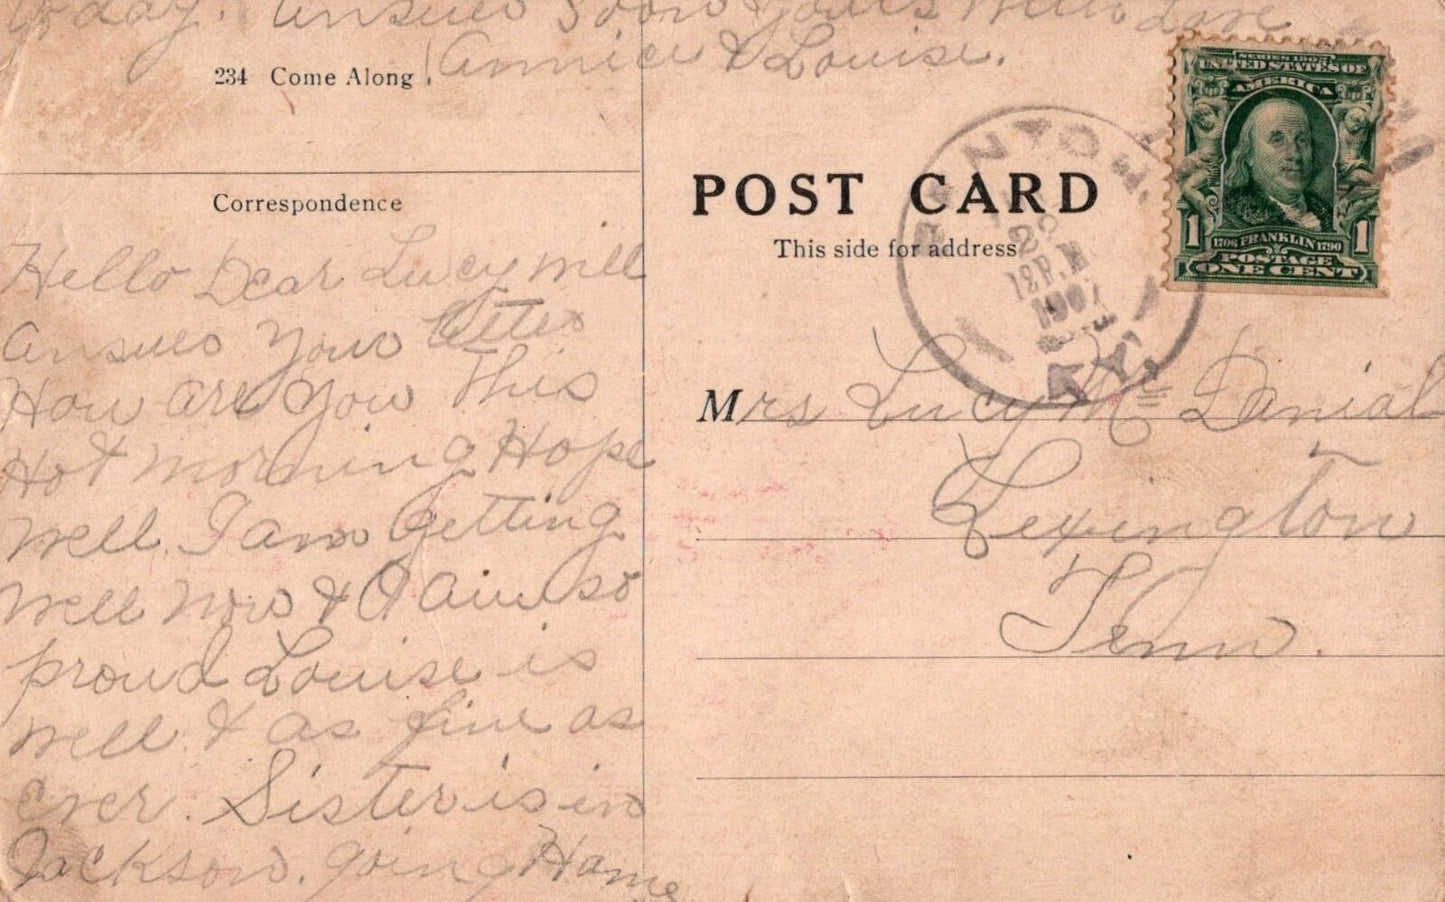 today. Answer Soon Yours With Love
Annice & Louise.
234 Come Along
Correspondence
Hello Dear Lucy will
answer your letter
How are you This
Hot morning Hope
well. I am getting
well now & I am so
proud Louise is
well & as fine as
ever. Sister is in
Jackson. going Home
POST CARD
This side for address
BENTON.
2
12 P.M
1907
KY.
SERIES 1902
UNITED STATES OF
AMERICA
1 1706 FRANKLIN 1790 1
POSTAGE
ONE CENT
Mrs Lucy Mc Danial
Lexington
Tenn.